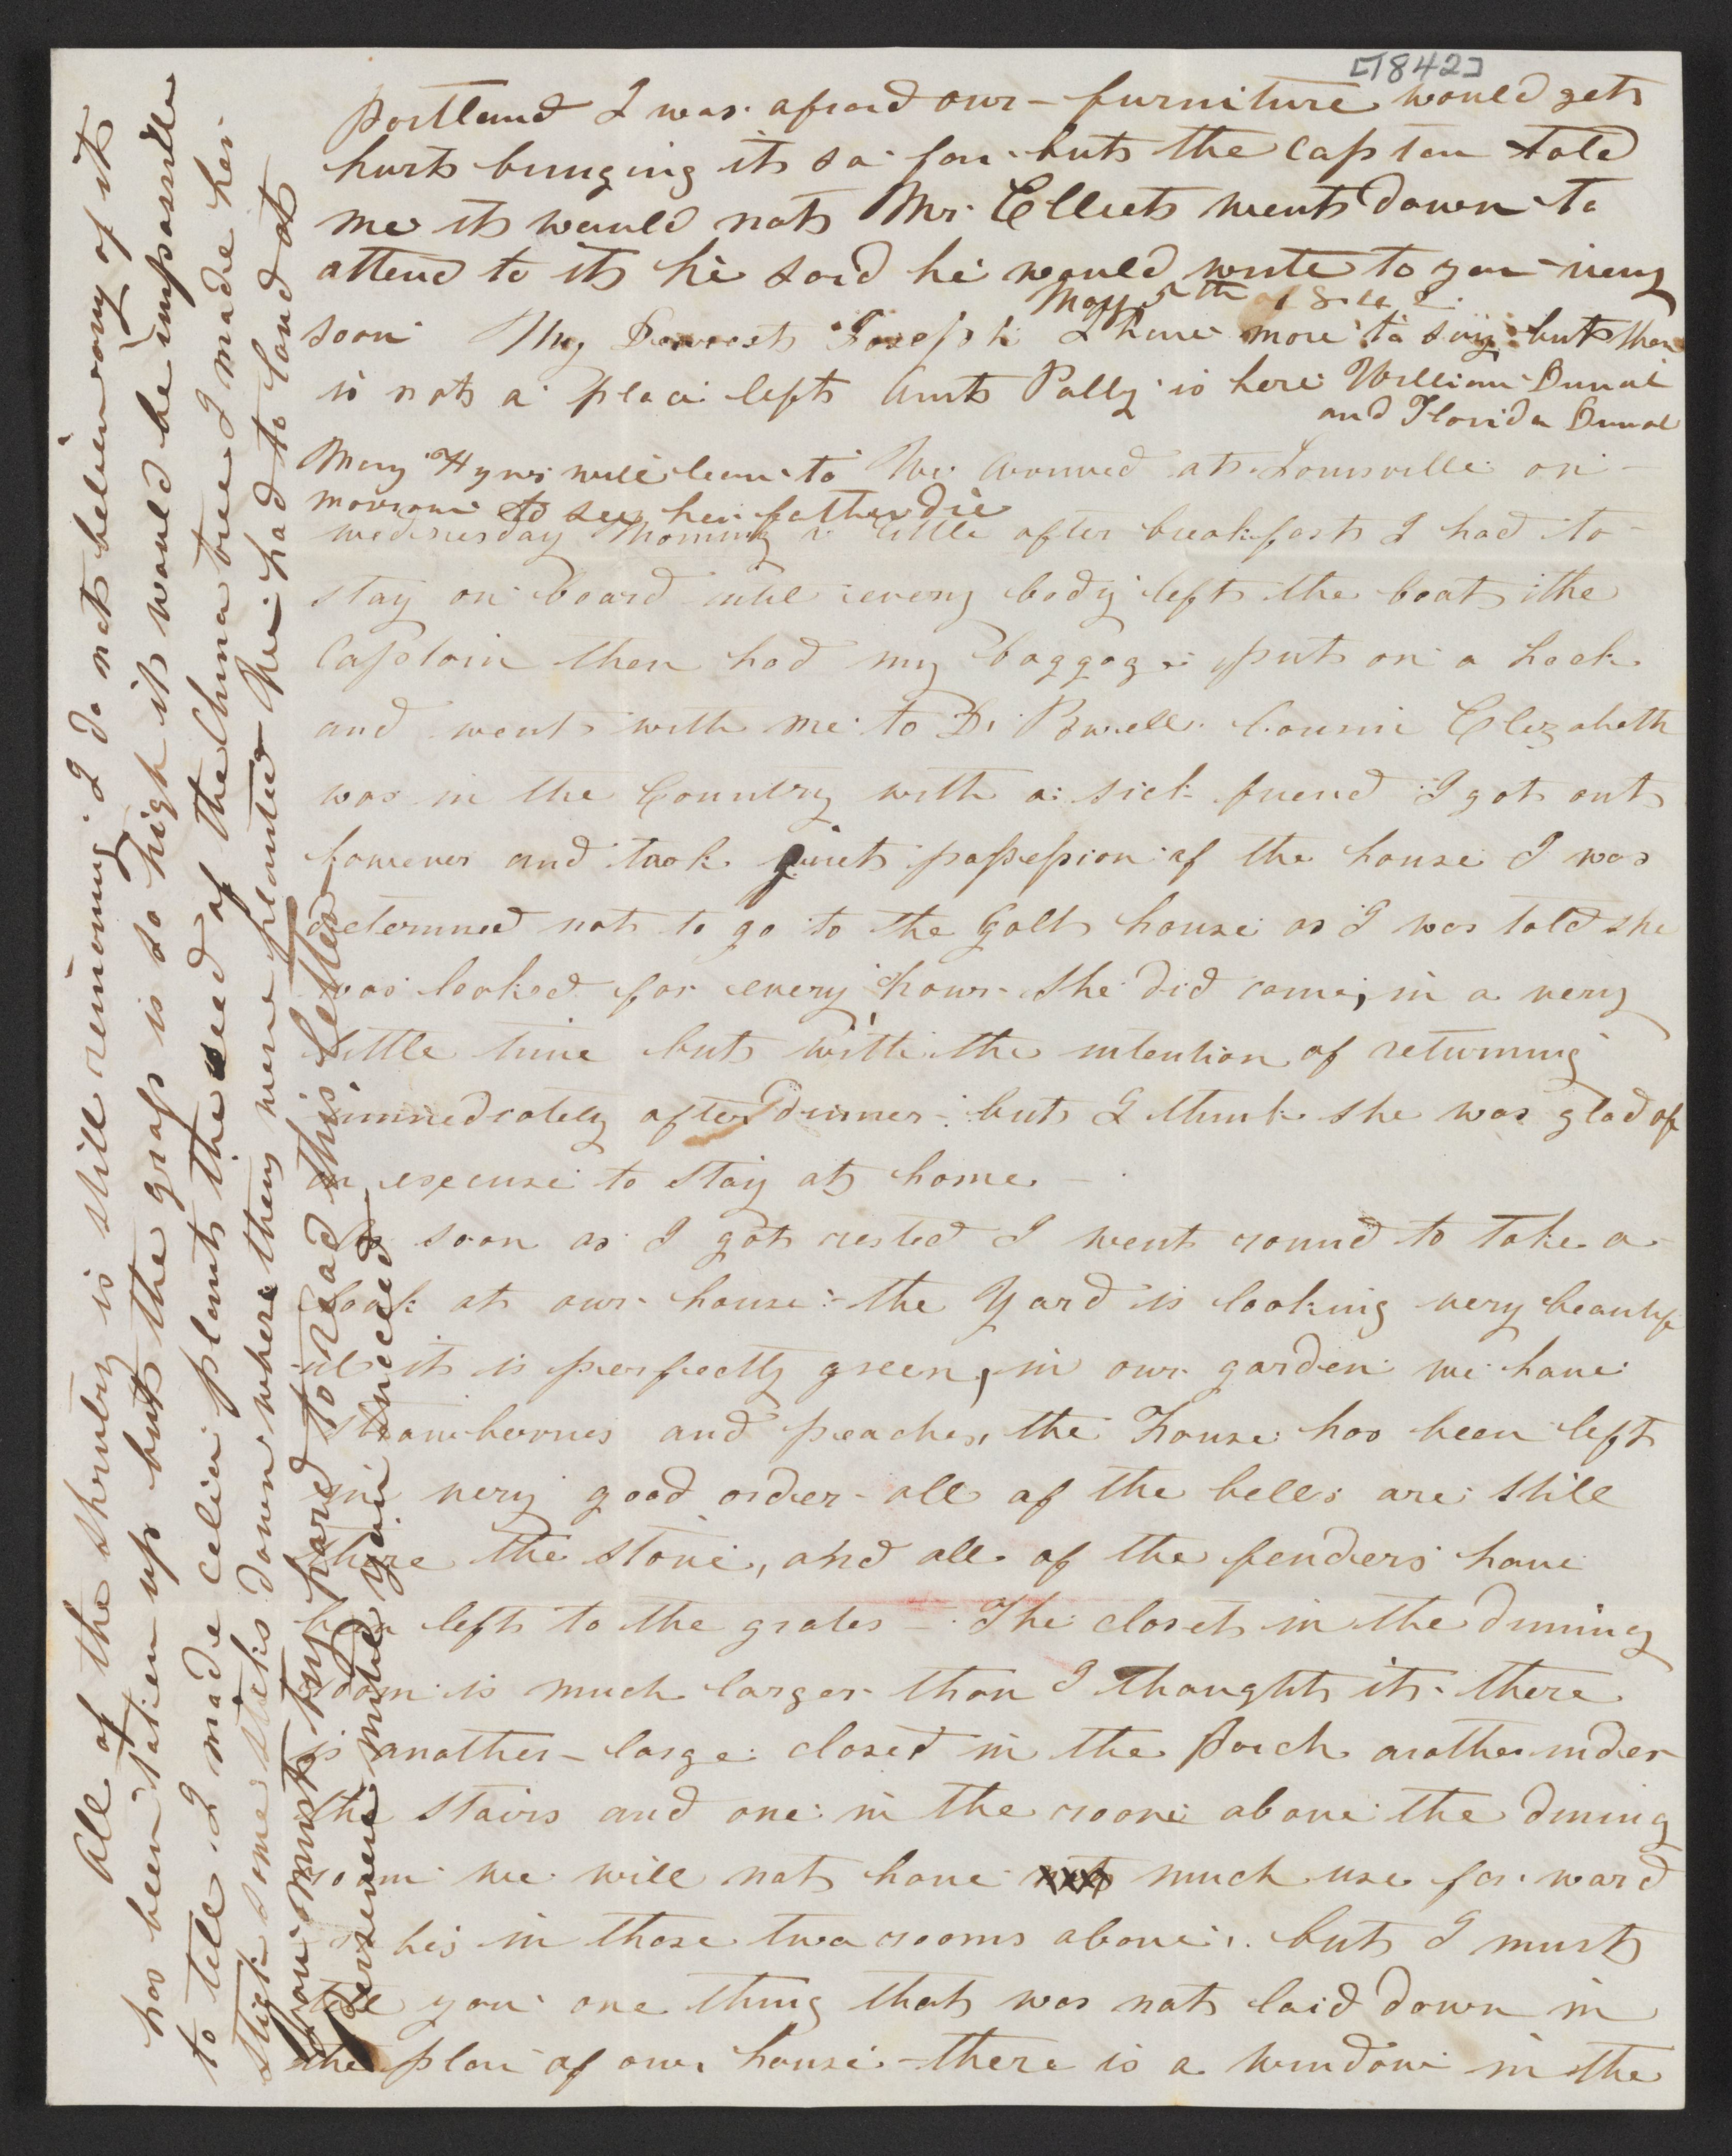 [1842]
Portland I was afraid our - furniture would get
hurt bringing it so far but the Captan told
me it would not Mr. Elliet went down to
attend to it he said he would write to you very
May 5th 1842
soon My Dearest Joseph I have more to say but there
is not a place left Aunt Polly is here William Duval
and Florida Duval
Mary Hynes will leave to
morrow to see her father die
We arrived at Louisville on
wednesday Morning a little after breakfast I had to
stay on board until every body left the boat the
Captain then had my baggage put on a hack
and went with me to Dr Powell Cousin Elizabeth
was in the Country with a sick friend I got out
however and took quiet possession of the house I was
determined not to go to the Galt house as I was told she
was looked for every hour - she did come, in a very
little time but with the intention of returning
immediately after dinner - but I think she was glad of
an excuse to stay at home. -
As soon as I got rested I went round to take a
look at our house - the Yard is looking very beautif
ul it is perfectly green, in our garden we have
strawberries and peaches, the house has been left
in very good order - all of the bells are still
there the stove, and all of the fenders have
been left to the grates - The closet in the dining
room is much larger than I thought it - there
is another - large closet in the Porch another under
the stairs and one in the room above the dining
room we will not have not much use for ward
robes in those two rooms above, but I must
tell you one thing that was not laid down in
the plan of our house - there is a window in the
All of the shrubry is still remaining I do not believe any of it
has been taken up but the grass is so high it would be impossible
to tell I made Celia plant the seed of the China tree I made her
stick some sticks down where they were planted We had to land at
You must try hard to read this letter
Persevere until you succeed